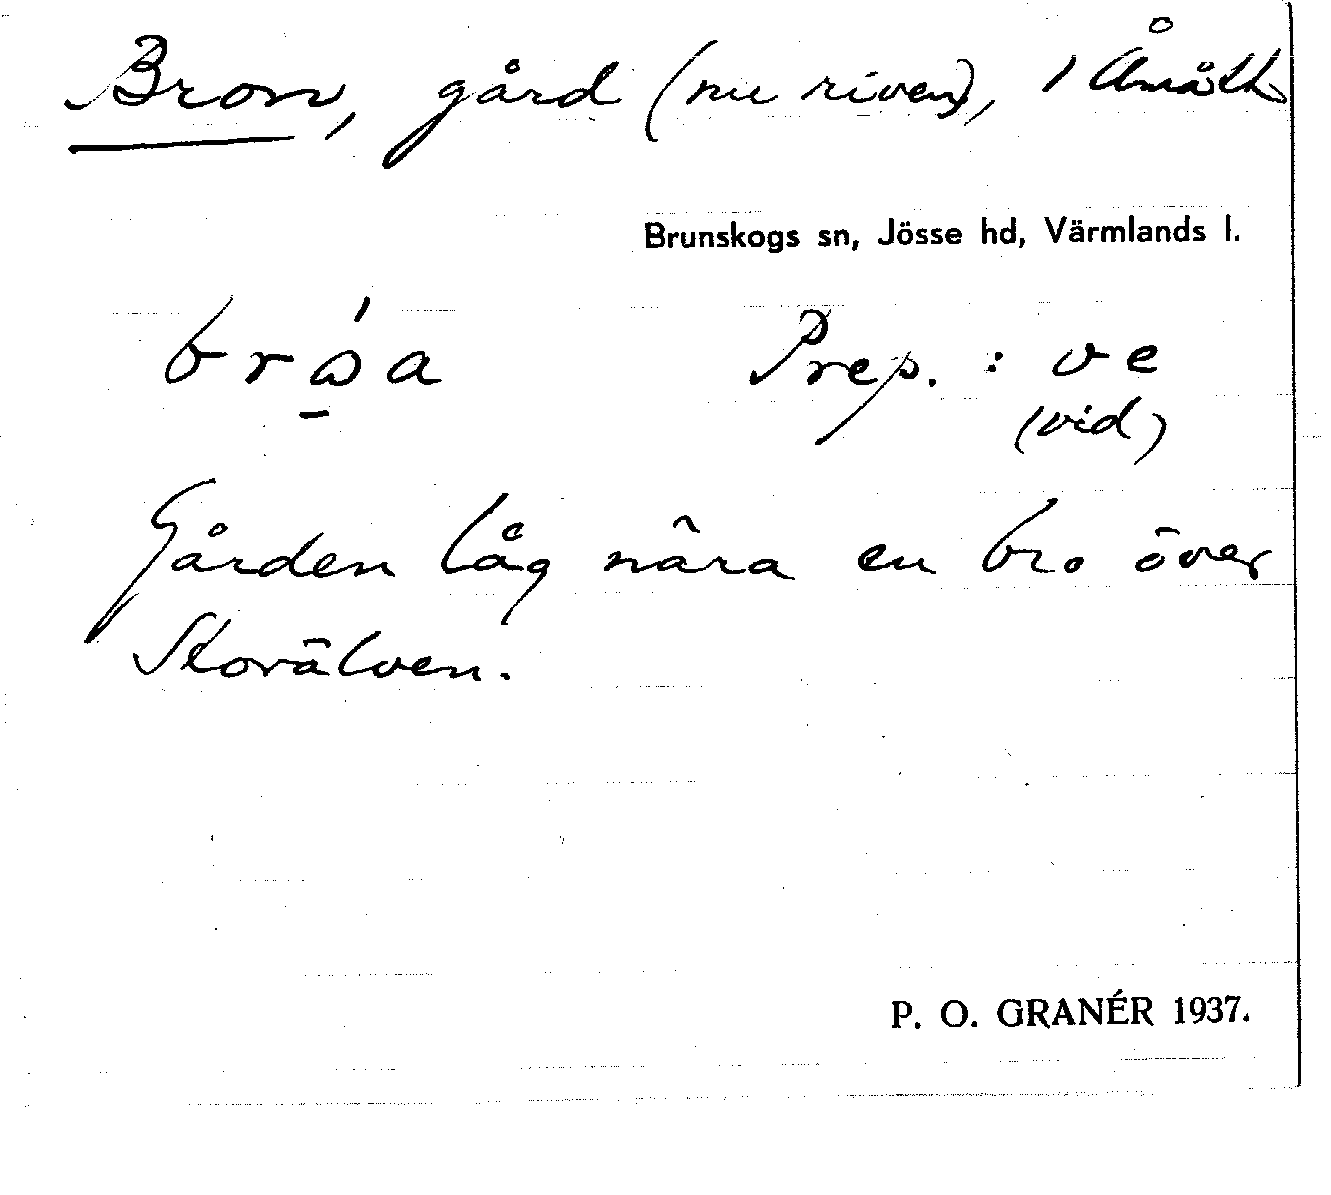 Bron, gård (nu riven), 1 Åmåth
Brunskogs sn, Jösse hd, Värmlands l.
Prep. : ve
(vid)
Gården låg nära en bro över
Storälven.
P. O. GRANÉR 1937.